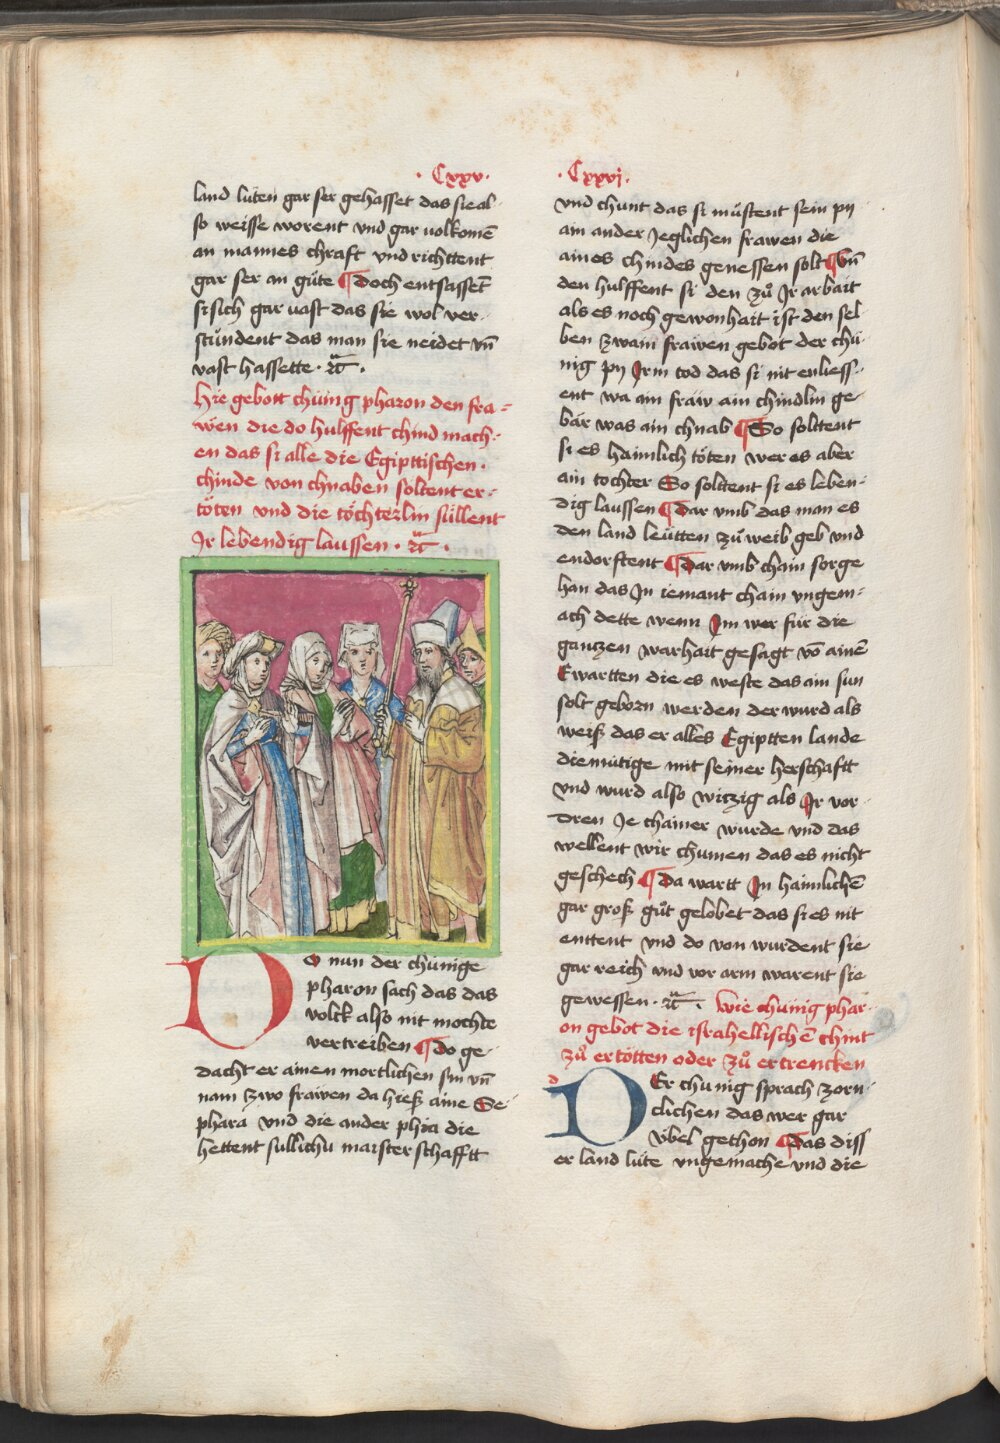 · Cxxv ·
land lüten gar ser gehasset das sie al
so weisse worent vnd gar volkomē
an mannes chraft vnd richttent
gar ser an güte ¶ Doch entsasset̄
si sich gar vast das sie wol ver-
stündent das man sie neidet vn̄
vast hassette · ⁊c̄ ·
Hie gebott chünig pharon den fra=
wen die do hulffent chind mach-
en das si alle die Egipttischen ·
chinde von chnaben soltent er-
töten vnd die töchterlin süllent
Jr lebendig laussen · ⁊c̄ ·
DO nun der chünige
pharon sach das das
volck also nit mochte
vertreiben ¶ Do ge-
dacht er ainen mortlichen sin vn̄
nam zwo frawen da hieß aine Se-
phara vnd die ander phia die
hettent sullichu maisterschafftt
· Cxxvj ·
vnd chunt das si müstent sein py
ain ander Jeglichen frawen die
aines chindes genessen solt ¶ Vn̄
den hulffent si den zů Jr arbait
als es noch gewonhait ist den sel
ben zwain frawen gebot der chü-
nig py Jrm tod das si nit enliess-
ent wa ain fraw ain chindlin ge
bär was ain chnab ¶ So solttent
si es haimlich töten wer es aber
ain tochter So solttent si es leben-
dig laussen ¶ Dar vmb das man es
den land leütten zů weib geb vnd
endorfftent ¶ Dar vmb chain sorge
han das Jn iemant chain vngem-
ach dette wenn Jm wer für die
gantzen warhait gesagt vō ainē
Ewartten die es weste das ain sun
solt geborn werden der wurd als
weiß das er alles Egiptten lande
diemütige mit seiner herschaftt
vnd wurd also witzig als Jr vor-
dren Je chainer wurde vnd das
wellent wir chumen das es nicht
geschech ¶ Da wartt Jn haimlichē
gar groß gůt gelobet das si es nit
enttent vnd do von wurdent sie
gar reich vnd vor arm warent sie
gewessen · ⁊c̄ · Wie chunig phar-
on gebot die israhellischē chint
zů ertötten oder zů ertrencken
DEr chunig sprach zorn-
clichen das wer gar
Vbel gethon ¶ Das diss
er land lüte vngemache vnd die